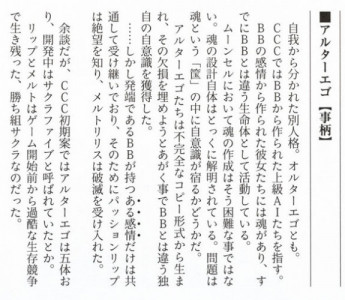 ■アルターエゴ【事柄】
自我から分かれた別人格。オルターエゴとも。
CCCではBBから作られた上級AIたちを指す。
BBの感情から作られた彼女たちには魂があり、す
でにBBとは違う生命体として活動している。
ムーンセルにおいて魂の作成はそう困難な事ではな
い。魂の設計自体はとっくに解明されている。問題は
魂という【筐】の中に自意識が宿るかどうかだ。
アルターエゴたちは不完全なコピー形式から生ま
れ、その欠損を埋めようとあがく事でBBとは違う独
自の自意識を獲得した。
……しかし発端であるBBが持つある感情だけは共
通して受け継いでおり、そのためにパッションリップ
は絶望を知り、メルトリリスは破滅を受け入れた。
余談だが、CCC初期案ではアルターエゴは五体お
り、開発中はサクラファイブと呼ばれていたとか。
リップとメルトはゲーム開始前から過酷な生存競争
で生き残った、勝ち組サクラなのだった。